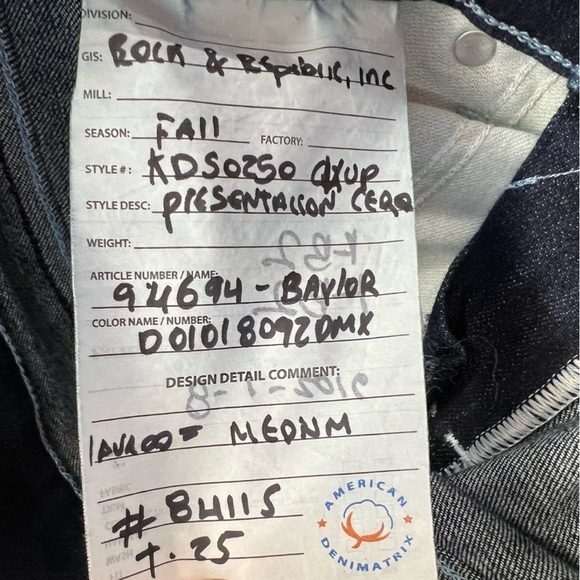 DIVISION:
GIS: ROCK & REpublic, INC
MILL:
SEASON: FAll FACTORY:
STYLE #: KDS0250 dxup
STYLE DESC: PRESENTACION CERO
WEIGHT:
ARTICLE NUMBER / NAME:
94694 - BAYlOR
COLOR NAME / NUMBER:
D01018092DMX
DESIGN DETAIL COMMENT:
lAVADO = MEDNM
# 84115
+.25
AMERICAN
DENIMATRIX